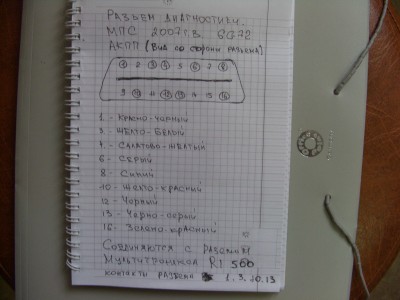 РАЗЪЕМ ДИАГНОСТИКИ.
МПС 2007 Г.В. 6G72
АКПП (ВИД СО СТОРОНЫ РАЗЪЕМА)
1 2 3 4 5 6 7 8
9 10 11 12 13 14 15 16
1 - КРАСНО-ЧЁРНЫЙ
3 - ЖЕЛТО-БЕЛЫЙ
4 - САЛАТОВО-ЖЕЛТЫЙ
6 - СЕРЫЙ
8 - СИНИЙ
10 - ЖЕЛТО-КРАСНЫЙ
12 - ЧЕРНЫЙ
13 - ЧЕРНО-СЕРЫЙ
16 - ЗЕЛЕНО-КРАСНЫЙ
СОЕДИНЯЮТСЯ С РАЗЪЕМОМ
МУЛЬТИТРОНИКСА RI 500
КОНТАКТЫ РАЗЪЕМА 1. 3. 10. 13